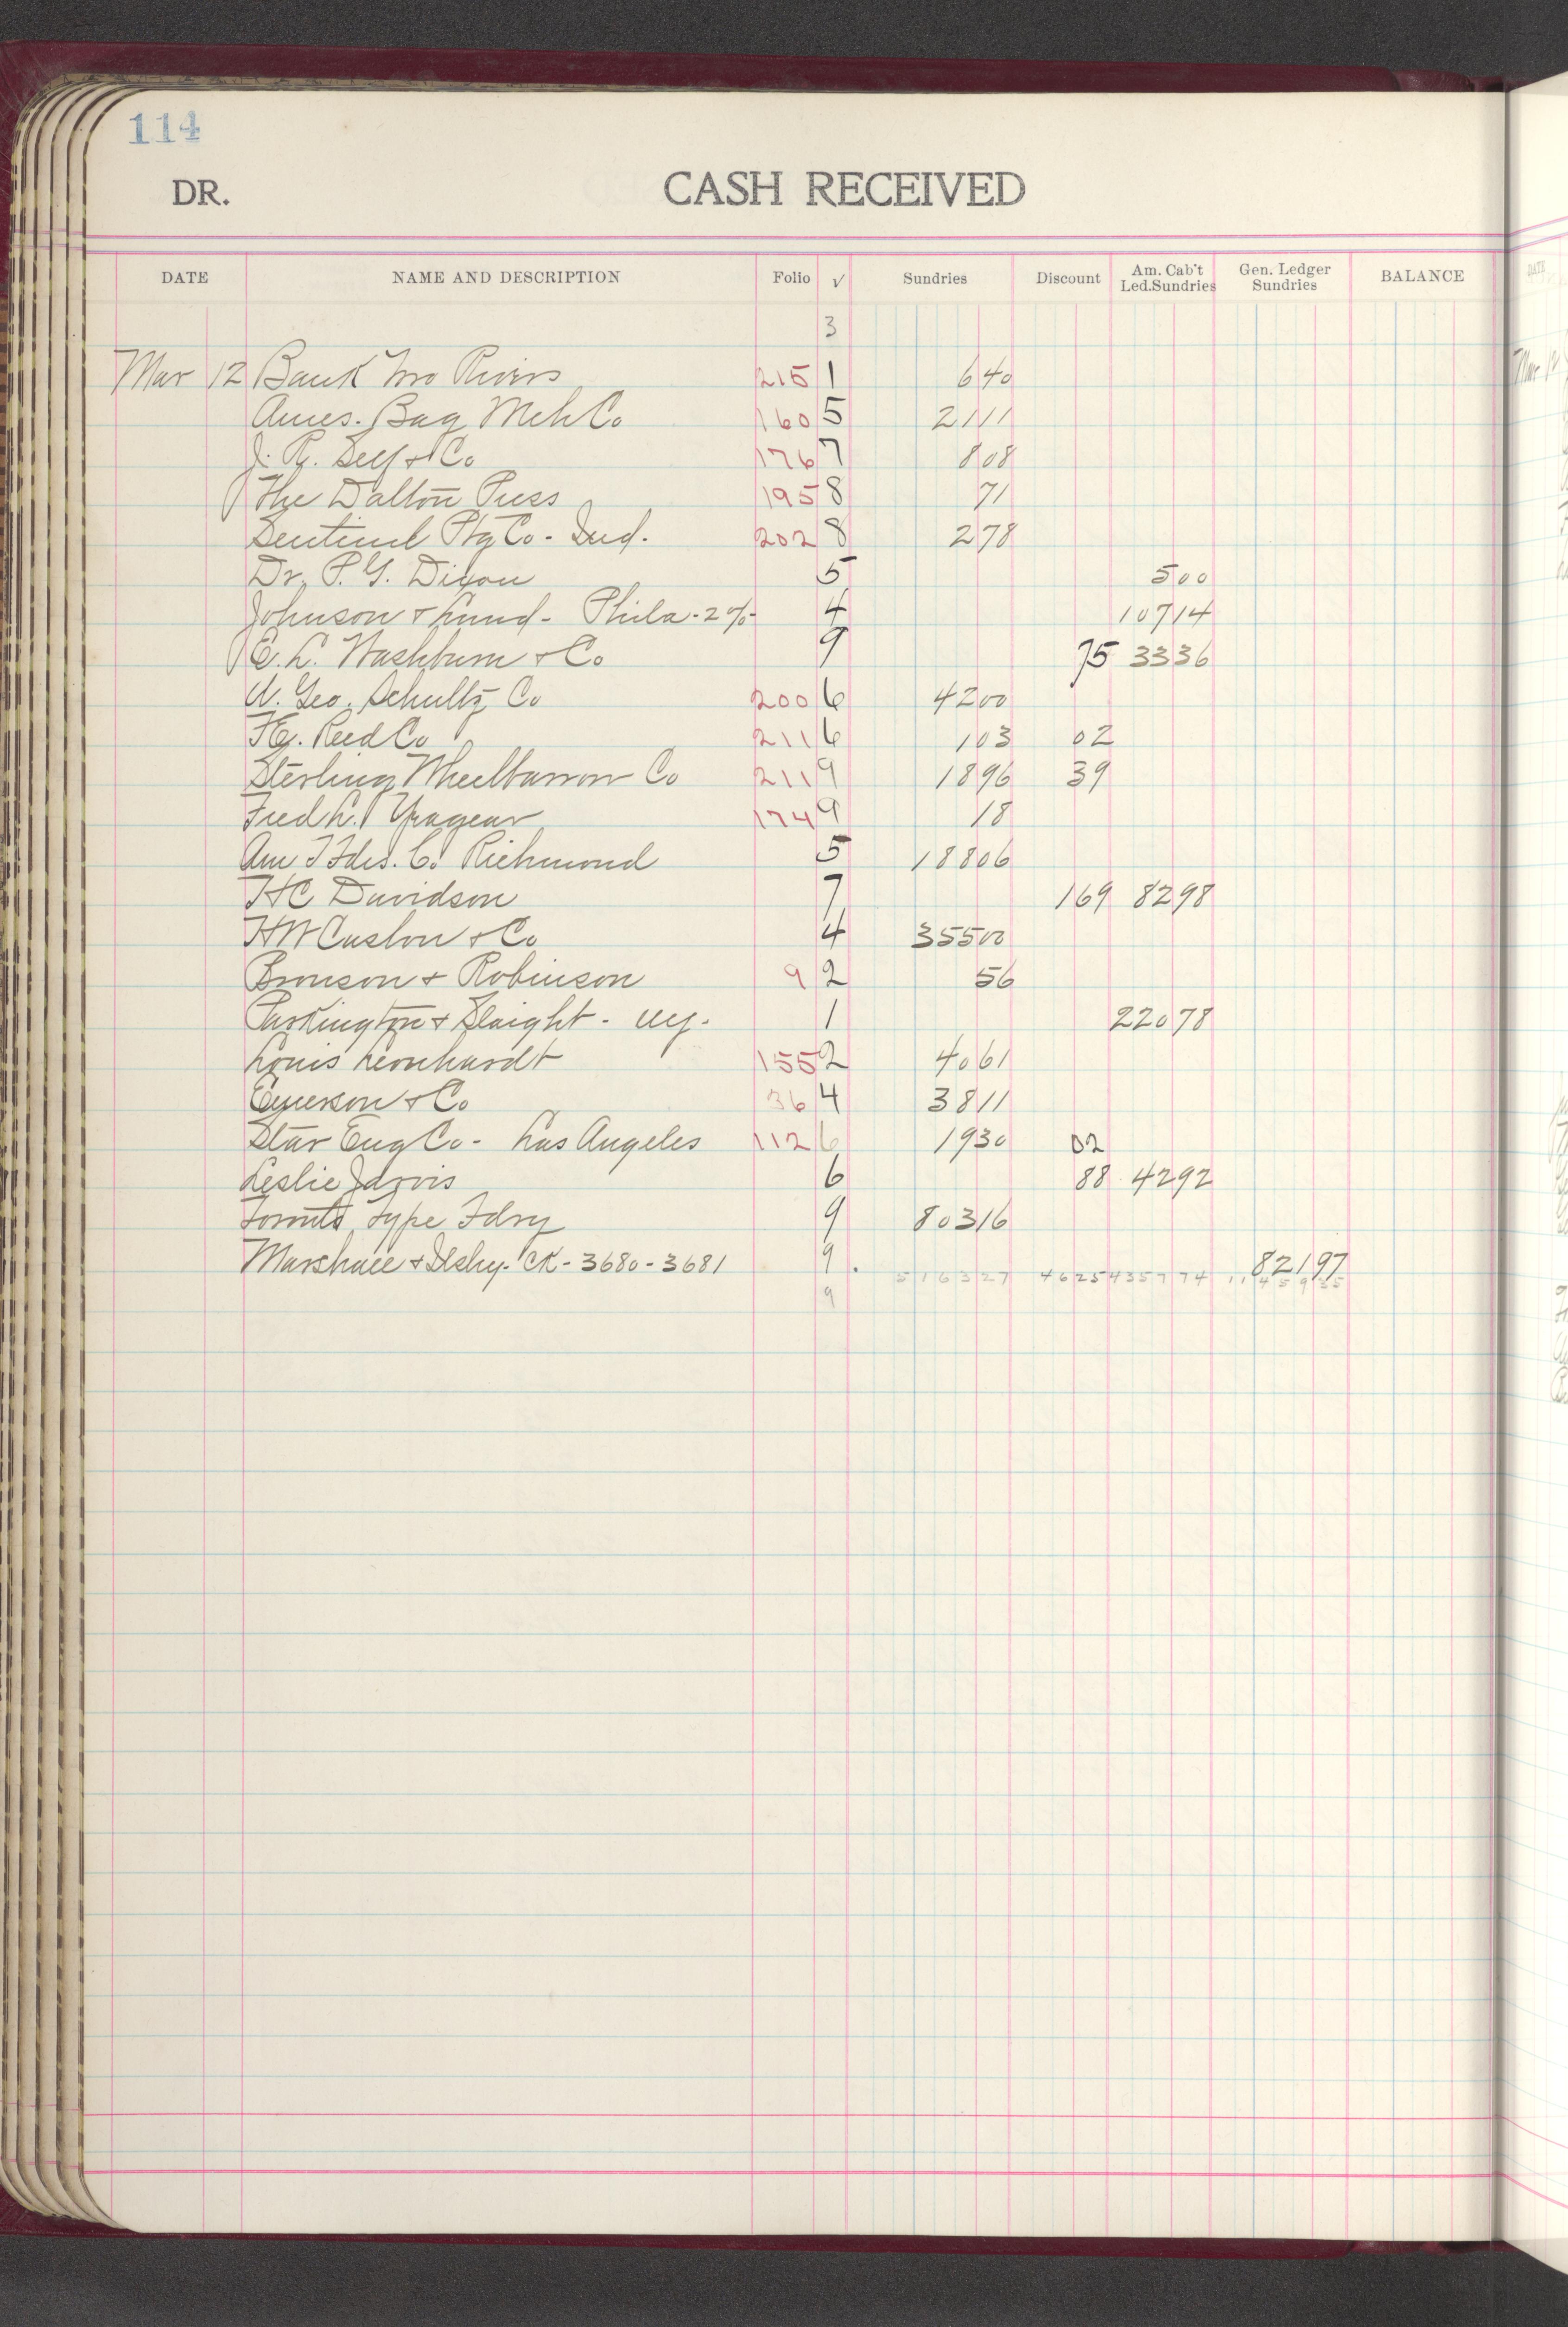 114
DR. CASH RECEIVED
DATE NAME AND DESCRIPTION Folio √ Sundries Discount Am. Cab't Led.Sundries Gen. Ledger Sundries BALANCE
3
Mar 12 Bank Two Rivers 215 1 6 40
Ames. Bag Mch Co 160 5 21 11
J. R. Self & Co 176 7 8 08
The Dalton Press 195 8 71
Sentinel Ptg Co - Ind. 202 8 2 78
Dr. P. G. Dixon 5 5 00
Johnson & Lund - Phila - 2% 4 107 14
E. L. Washburn & Co 9 75 33 36
W. Geo. Schultz Co 200 6 42 00
F. E. Reed Co 211 6 1 03 02
Sterling Wheelbarrow Co 211 9 18 96 39
Fred L. 174 9 18
Am T Fdrs. Co Richmond 5 188 06
H C Davidson 7 1 69 82 98
H W Caslon & Co 4 355 00
Bronson & Robinson 9 2 56
& Slaight - NY. 1 220 78
Louis Leonhardt 155 2 40 61
Emerson & Co 36 4 38 11
Star Eng Co - Los Angeles 112 6 19 30 02
Leslie Jarvis 6 88 42 92
Toronto Type Fdry 9 803 16
Marshall & Ilsley - CK - 3680 - 3681 9 821 97
5163 27 46 25 4357 74
9